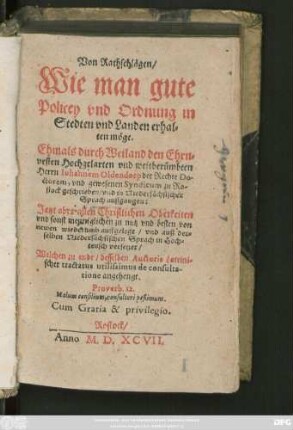 Von Rathschlägen/
Wie man gute
Policey vnd Ordnung in
Stedten vnd Landen erhal-
ten möge.
Ehmals durch Weiland den Ehrn-
vesten Hochgelarten vnd weitberümbten
Herrn Johannem Oldendorp der Rechte Do-
ctorem, vnd gewesenen Syndicum zu Ro-
stock geschrieben/ vnd in Niedersächsischer
Sprach außgangen:
Jetzt aber allen Christlichen Obrkeiten
vnd sonst menniglichen zu nutz vnd besten von
newen wiederumb auffgelegt/ vnd auß der-
selben Niedersächsischen Sprach in Hoch-
teutsch versetzet/
Welchen zu ende/ desselben Auctoris Lateini-
scher tractatus utilissimus de consulta-
tione angehengt.
Proverb.
Malum consilium, consultori pessimum.
Cum Gratia & privilegio.
Rostock/
Anno M. D. XCVII.